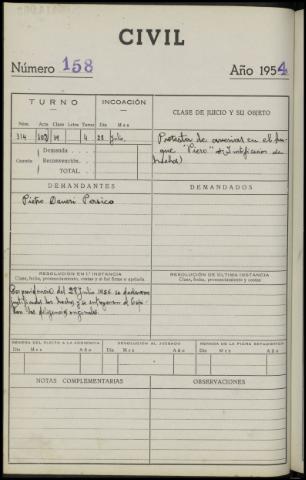 CIVIL
Número 158 Año 1954
TURNO
INCOACIÓN
CLASE DE JUICIO Y SU OBJETO
Núm. Acta Clase Letra Turno Día Mes
314 4 28 Julio
Protesta de averias en el bu-
que "Piero" o Justificación de
hechos)
Cuantía
Demanda
Reconvención
TOTAL
DEMANDANTES
DEMANDADOS
Pietro Persico
RESOLUCIÓN EN 1.ª INSTANCIA
Clase, fecha, pronunciamiento, costas y si fué firme o apelada
RESOLUCIÓN DE ÚLTIMA INSTANCIA
Clase, fecha, pronunciamiento y costas
Por providencia del 29 Julio 1954 se declararon
justificados los hechos y se entregaron al Capi-
tan las diligencias originales.
REMESA DEL PLEITO A LA AUDIENCIA
DEVOLUCIÓN AL JUZGADO
REMESA DE LA FICHA ESTADÍSTICA
Día Mes Año Día Mes Año Día Mes Año
NOTAS COMPLEMENTARIAS
OBSERVACIONES